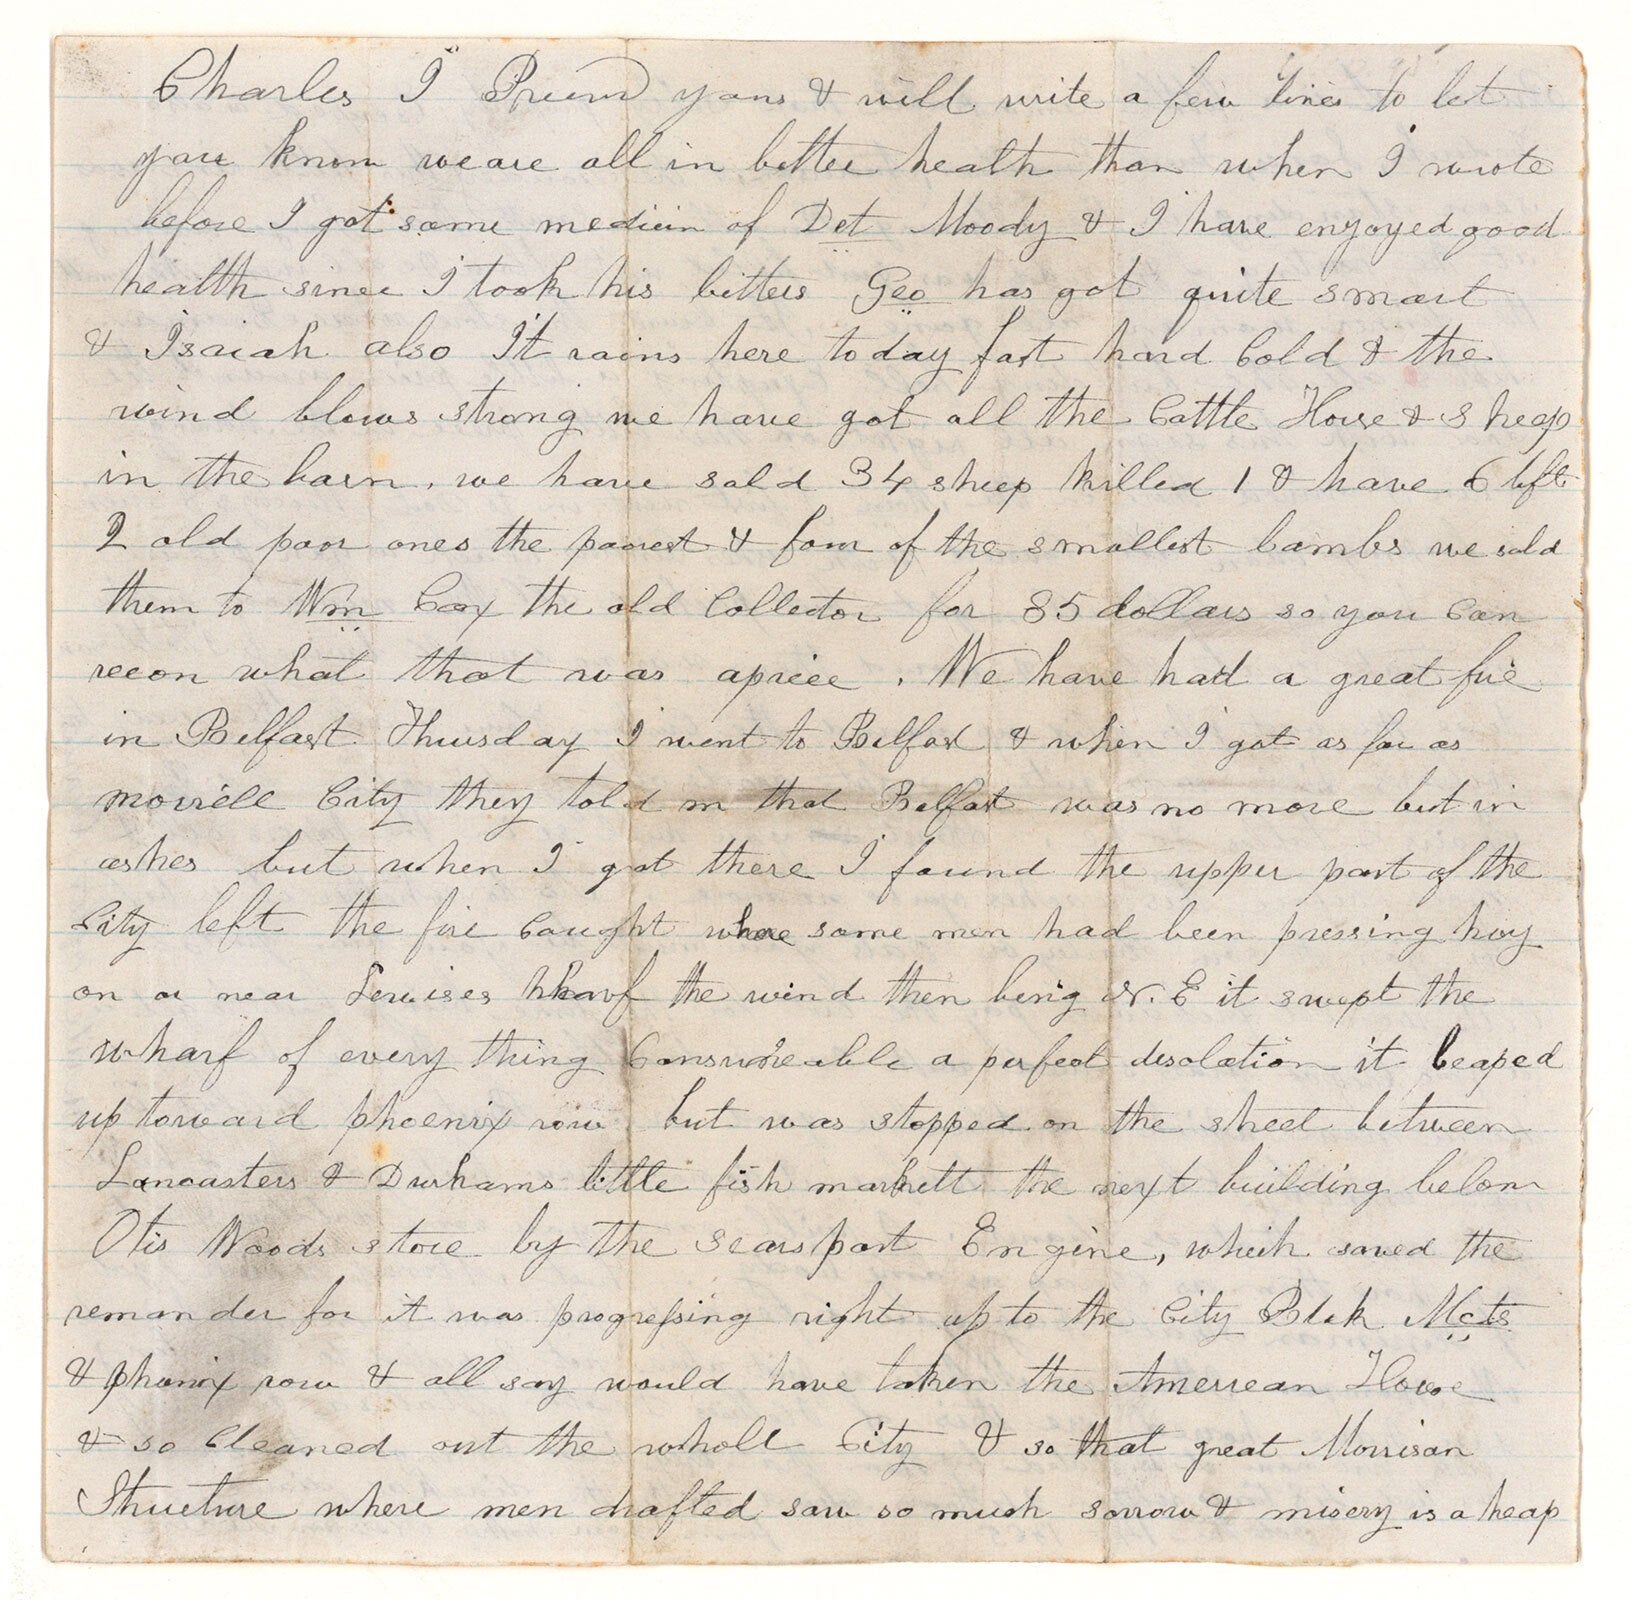 Charles I Recievd yours & will write a few lines to let
you know we are all in better health than when I wrote
before I got some medicin of Dct Moody & I have enjoyed good
health since I took his bitters Geo has got quite smart
& Isaiah also It rains here to day fast hard Cold & the
wind blows strong we have got all the Cattle Horse & Sheep
in the barn. we have sold 34 sheep killed 1 & have 6 left
2 old poor ones the poorest & four of the smallest lambs we sold
them to Wm Cox the old Collector for 85 dollars so you Can
recon what that was apiece. We have had a great fire
in Belfast Thursday I went to Belfast & when I got as far as
morrill City they told m that Belfast was no more but in
ashes but when I got there I found the upper part of the
City left the fire Caught where some men had been pressing hay
on or near Lewises Wharf the wind then being N. E it swept the
wharf of every thing Consumeable a perfect desolation it leaped
up toward phoenix row but was stopped on the street between
Lancasters & Durhams little fish markett the next building below
Otis Woods store by the searsport Engine, which saved the
remander for it was progressing right up to the City Blck Mcts
& phenix row & all say would have taken the Amerrean House
& so Cleaned out the whole City & so that great Morrison
Structure where men drafted saw so much sorrow & misery is a heap